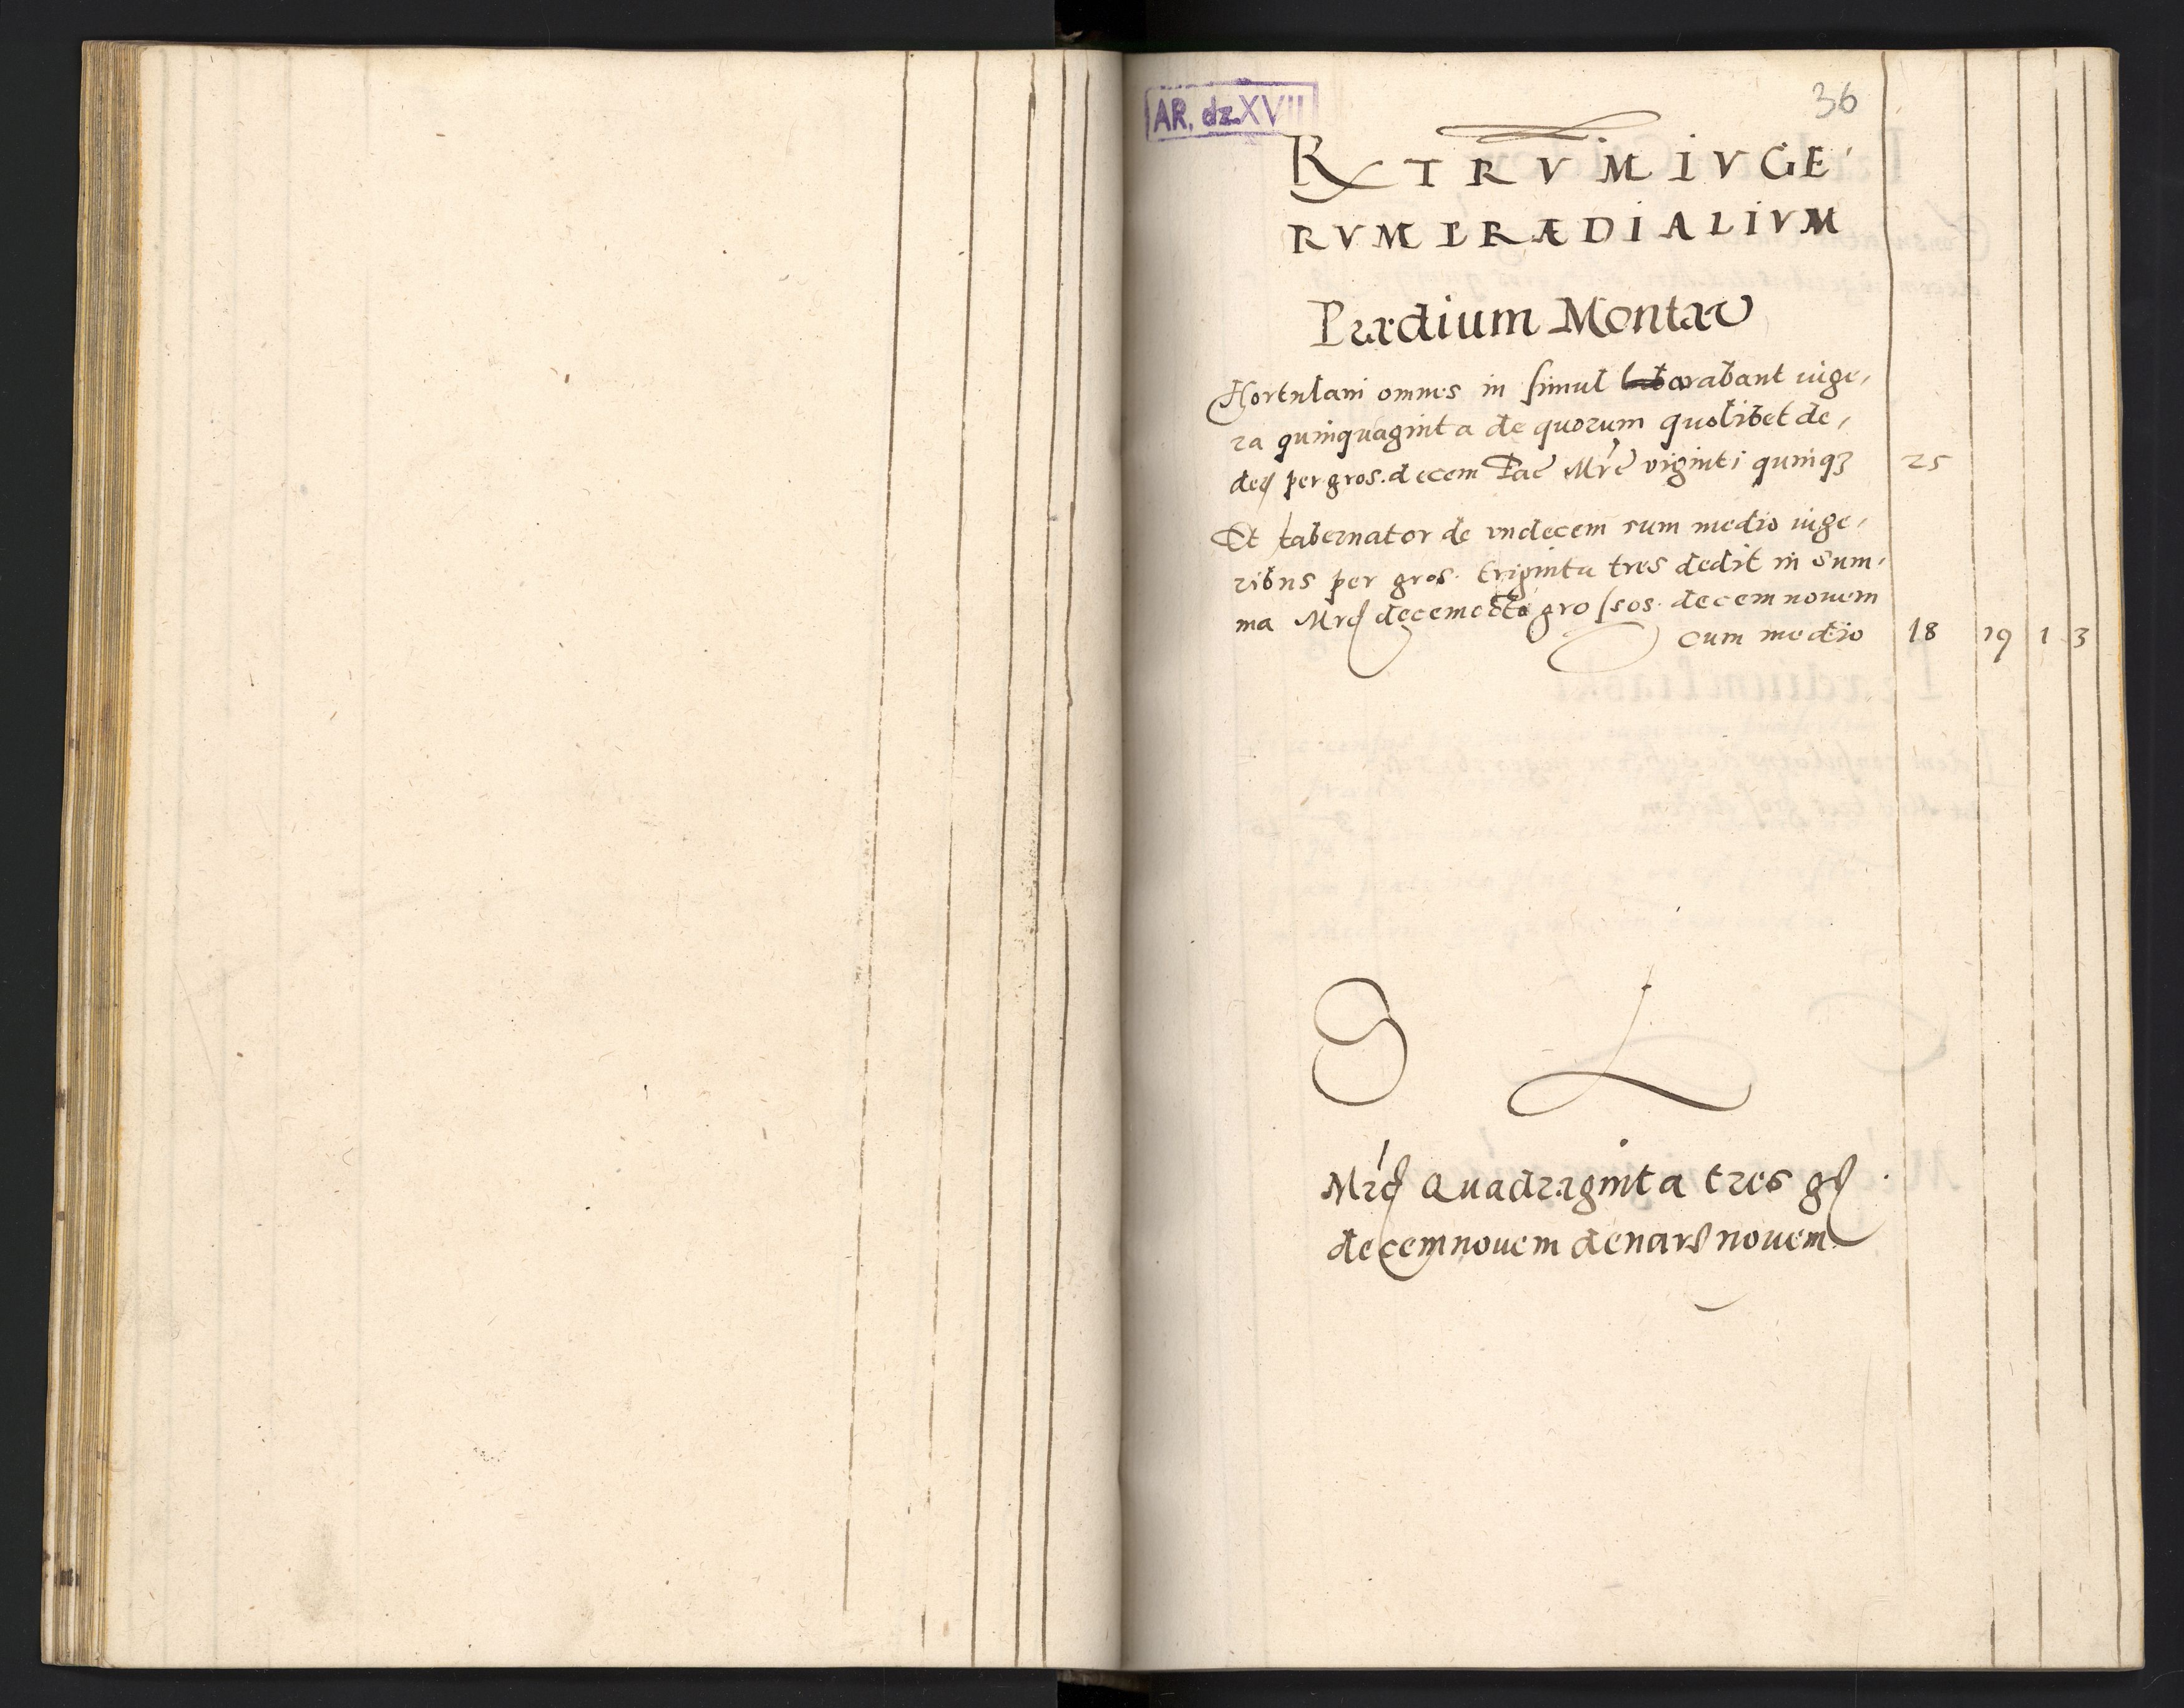 AR. dz. XVII
36
R TRVM IVGE
RVM PRÆDIALIVM
Prædium Montaw
Hortulani omnes in simul arabant iuge,
ra quinquaginta de quorum quolibet de,
der per gros. decem Fac Mrc viginti quinq3 25
Et tabernator de vndecem cum medio iuge,
ribus per gros. triginta tres dedit in Sum,
ma Mrc decemocto grossos decem nouem
cum medio 18 19 1 3
Mrc Quadraginta tres g
decemnouem denar nouem